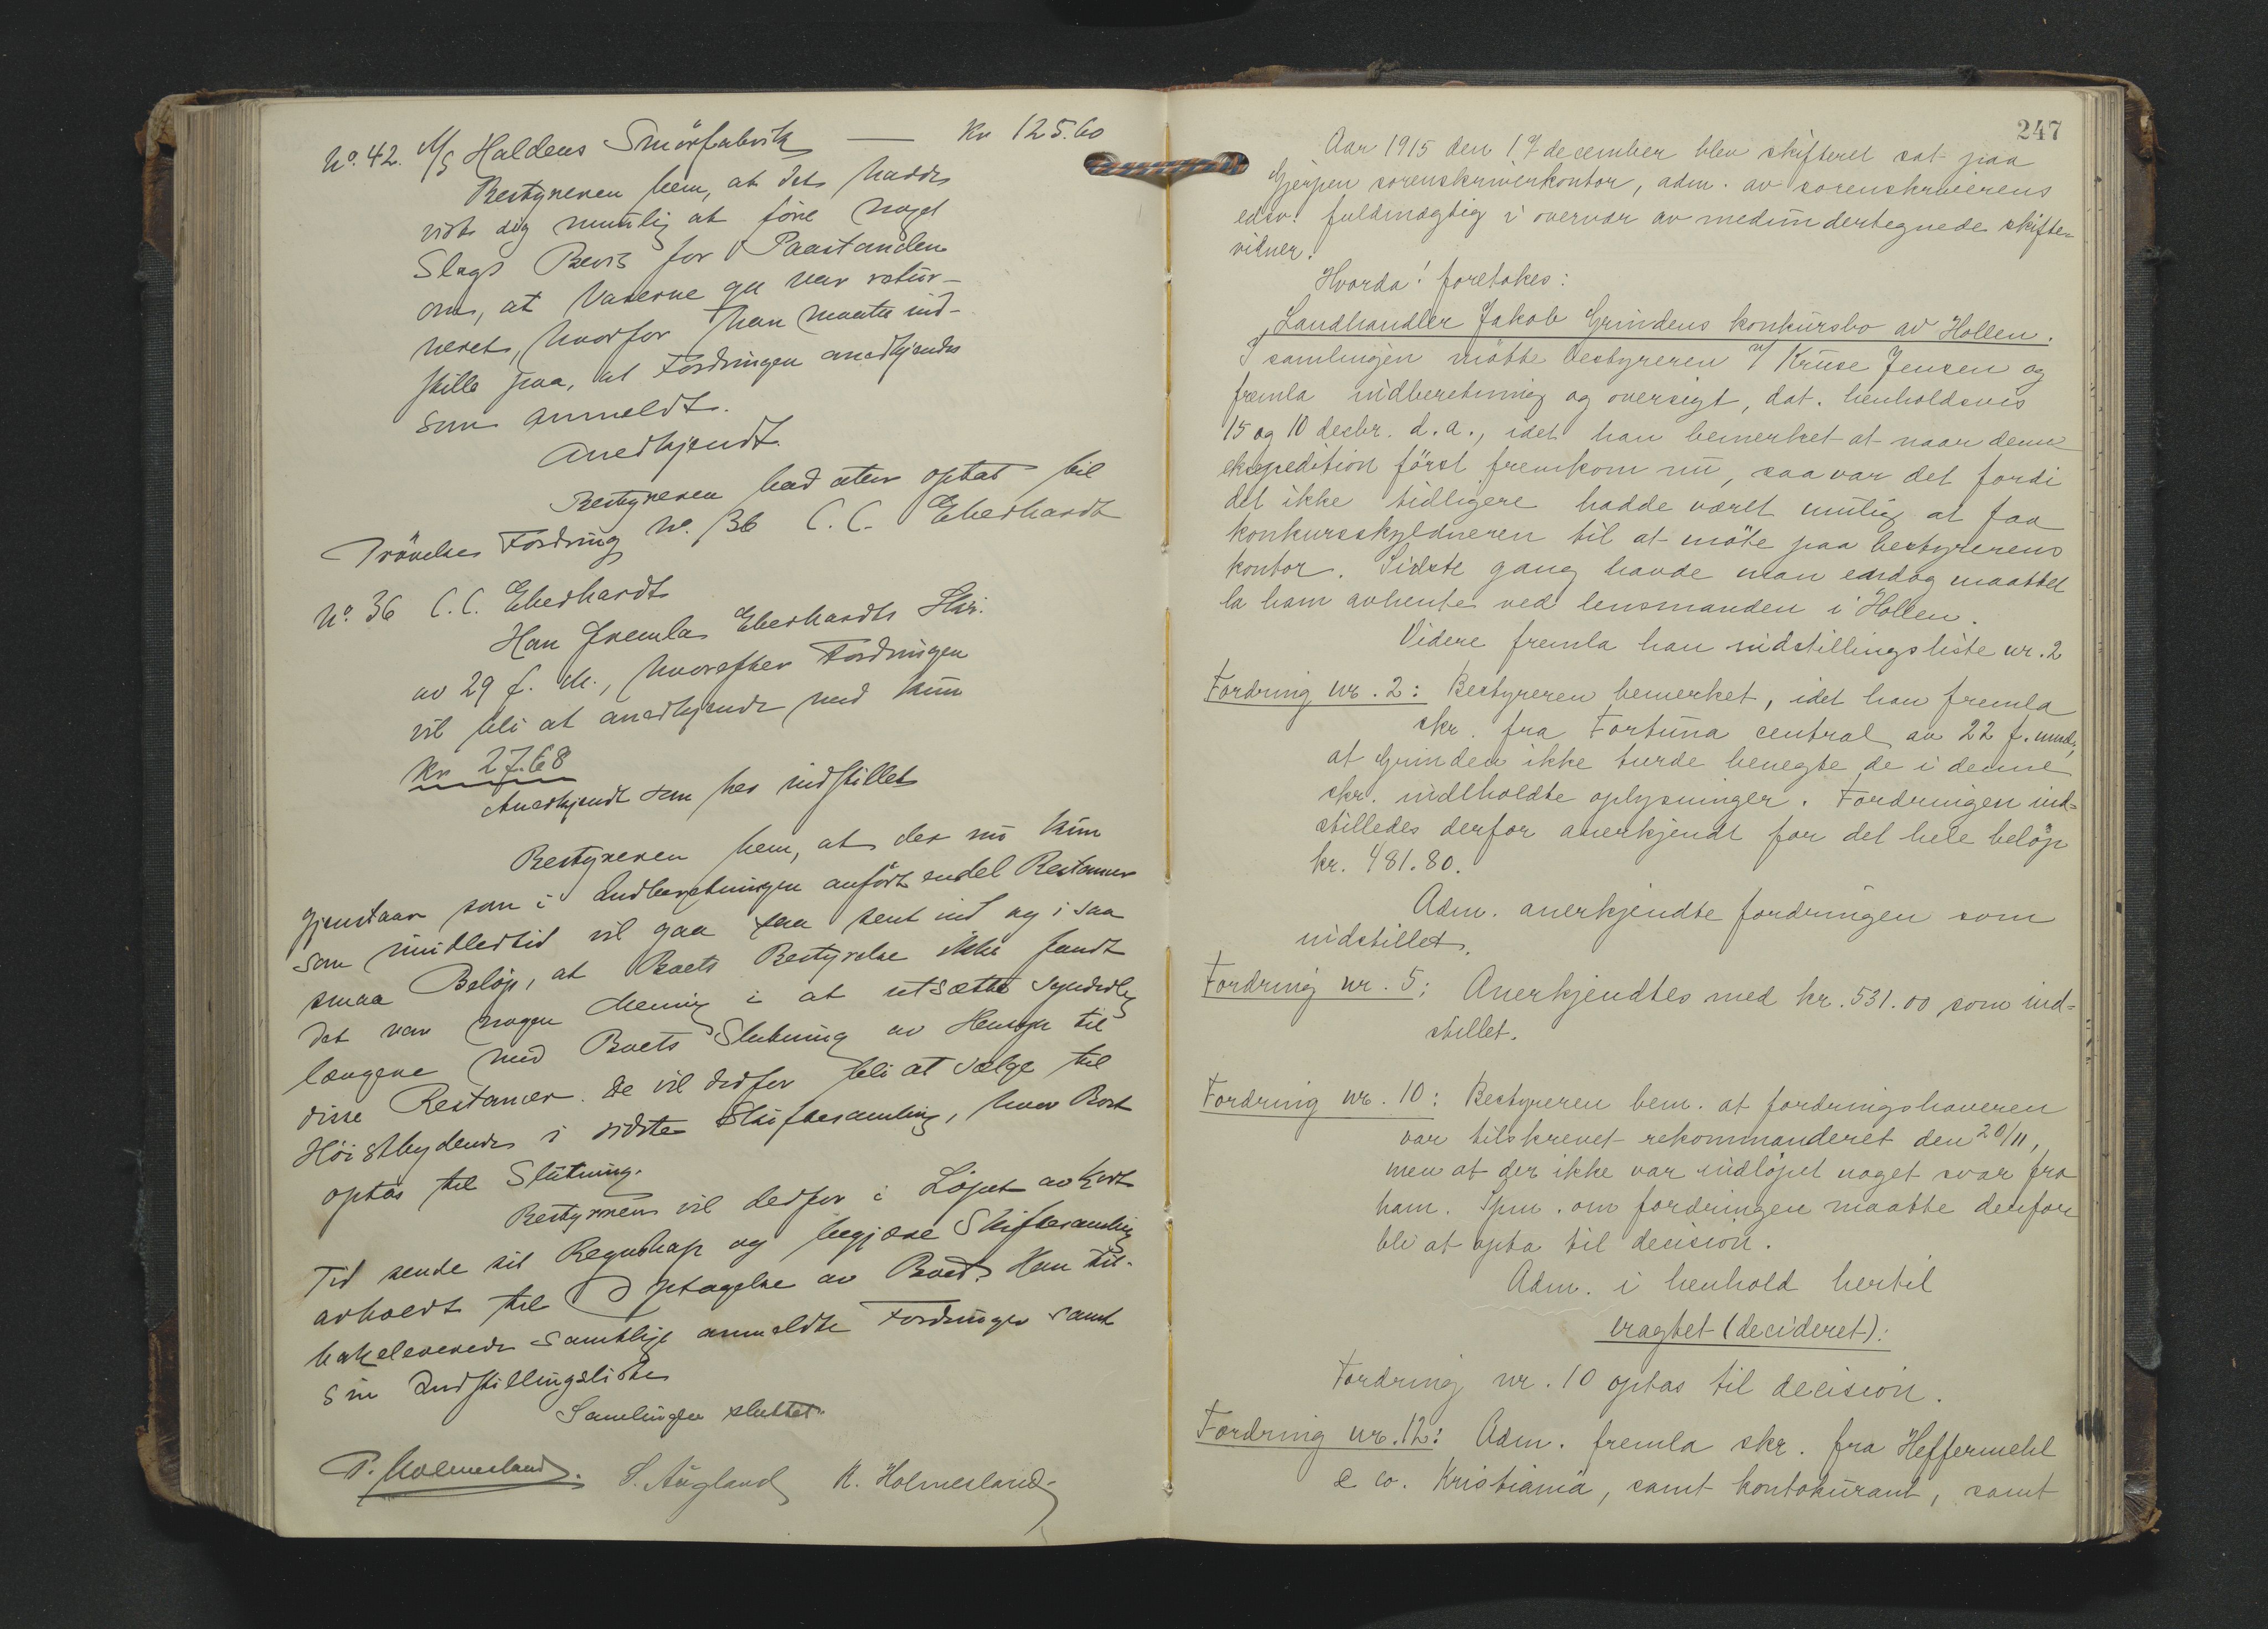 No. 42. A/S Haldens Smörfabrik — Kr 125.60
Bestyreren bem, at det hadde
vist sig umulig at före noget
Slags Bevis for Paastanden
om, at Varerne var retur-
neret, hvorfor han maatte ind-
stille paa, at Fordringen anerkjendes
som anmeldt.
Anerkjendt.
Bestyreren bad atter optat til
Prövelse Fordring No. 36 C. C. Eberhardt
No. 36 C. C. Eberhardt
Han fremla Eberhardts Skr.
av 29 f. M., hvorefter Fordringen
vil bli at anerkjende med kun
Kr 27.68
Anerkjendt som her indstillet
Bestyreren bem, at der nu kun
gjenstaar som i Indberetningen anfört endel Restancer
som imidlertid vil gaa saa sent ind og i saa
smaa Belöp, at Boets Bestyrelse ikke fandt
det var nogen Mening i at utsætte synderlig
længere med Boets Slutning av Hensyn til
disse Restancer. De vil derfor bli at sælge til
Höistbydende i sidste Skiftesamling, hvor Boet
optas til Slutning.
Bestyreren vil derfor i Löpet av kort
Tid sende sit Regnskap og begjære Skiftesamling
avholdt til Optagelse av Boet. Han til-
bakeleverede samtlige anmeldte Fordringer samt
sin Indstillingsliste
Samlingen sluttet.
P. Holmesland. S. Augland K. Holmesland
247
Aar 1915 den 17 december blev skifteret sat paa
Gjerpen sorenskriverkontor, adm. av sorenskriverens
edsv. fuldmægtig i overvær av medundertegnede skifte-
vidner.
Hvorda! foretokes:
Landhandler Jakob Grindens konkursbo av Hollen.
I samlingen mötte bestyreren v/ Kruse Jensen og
fremla indberetning og oversigt, dat. henholdsvis
15 og 10 decbr. d.a., idet han bemerket at naar denne
ekspedition först fremkom nu, saa var det fordi
det ikke tidligere hadde været mulig at faa
konkursskyldneren til at möte paa bestyrerens
kontor. Sidste gang havde man endog maattet
la ham avhente ved lensmanden i Hollen.
Videre fremla han indstillingsliste nr. 2
Fordring nr. 2: Bestyreren bemerket, idet han fremla
skr. fra Fortuna central av 22 f. mnd,
at Grinden ikke turde benegte de i denne
skr. indeholdte oplysninger. Fordringen ind-
stilledes derfor anerkjendt for det hele belöp
kr. 481.80.
Adm. anerkjendte fordringen som
indstillet.
Fordring nr. 5: Anerkjendtes med kr. 531.00 som ind-
stillet.
Fordring nr. 10: Bestyreren bem. at fordringshaveren
var tilskrevet rekommanderet den 20/11,
men at der ikke var indlöpet noget svar fra
ham. Spm. om fordringen maatte derfor
bli at opta til decision.
Adm. i henhold hertil
eragtet (decideret):
Fordring nr. 10 optas til decision.
Fordring nr. 12: Adm. fremla skr. fra Heffermehl
& co. Kristiania, samt kontokurant, samt